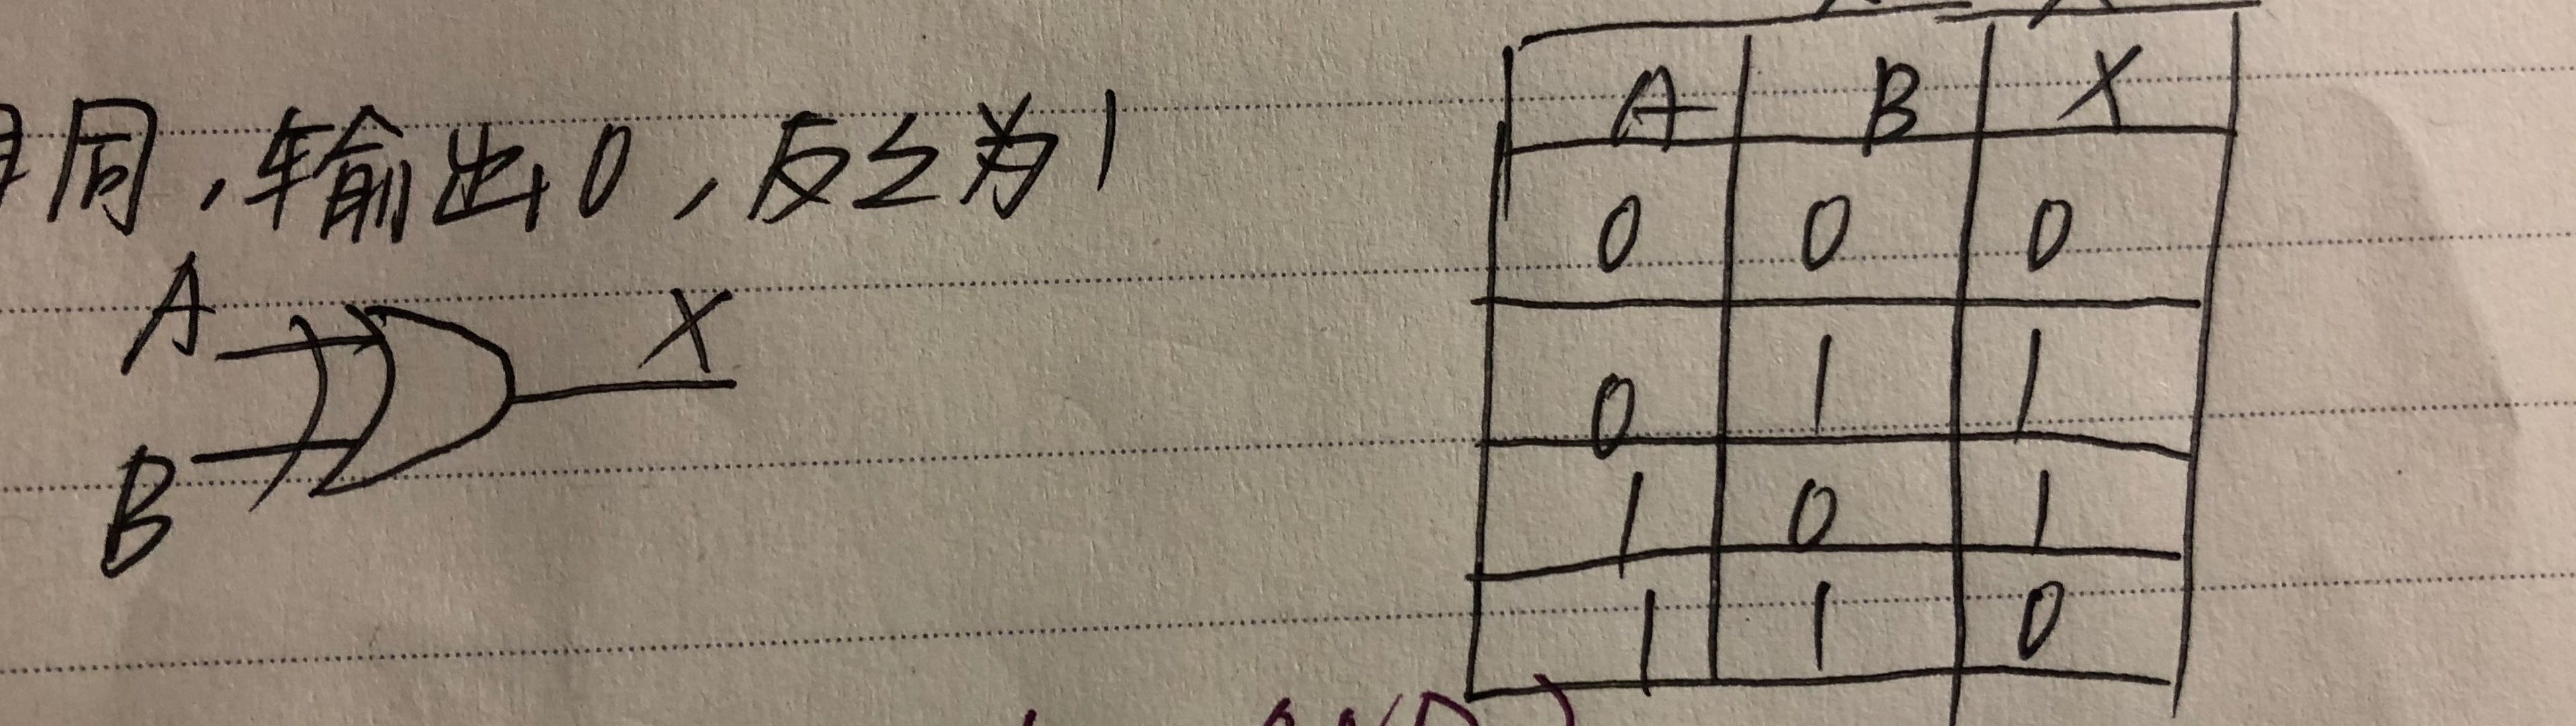 同,输出0,反之为1
A
X
B
A B X
0 0 0
0 1 1
1 0 1
1 1 0